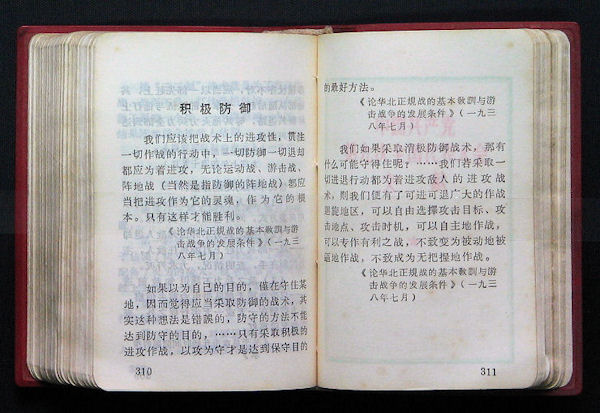 积极防御
我们应该把战术上的进攻性，贯注
一切作战的行动中，一切防御一切退却
都应为着进攻，无论运动战、游击战、
阵地战（当然是指防御的阵地战）都应
当把进攻作为它的灵魂，作为它的根
本。只有这样才能胜利。
《论华北正规战的基本敎訓与游
击战争的发展条件》（一九三
八年七月）
如果以为自己的目的，僅在守住某
地，因而觉得应当采取防御的战术，其
实这种想法是错误的，防守的方法不能
达到防守的目的，……只有采取积极的
进攻作战，以攻为守才是达到保守目的
310
的最好方法。
《论华北正規战的基本敎訓与游
击战争的发展条件》（一九三
八年七月）
我们如果采取消极防御战术，那有
什么可能守得住呢？……我们若采取一
切进退行动都为着进攻敌人的进攻战
术，则我们便有了可进可退广大的作战
迴旋地区，可以自由选擇攻击目标、攻
击地点、攻击时机，可以自主地作战，
可以专作有利之战，不致变为被动地被
逼地作战，不致成为无把握地作战。
《论华北正規战的基本敎訓与游
击战争的发展条件》（一九三
八年七月）
311